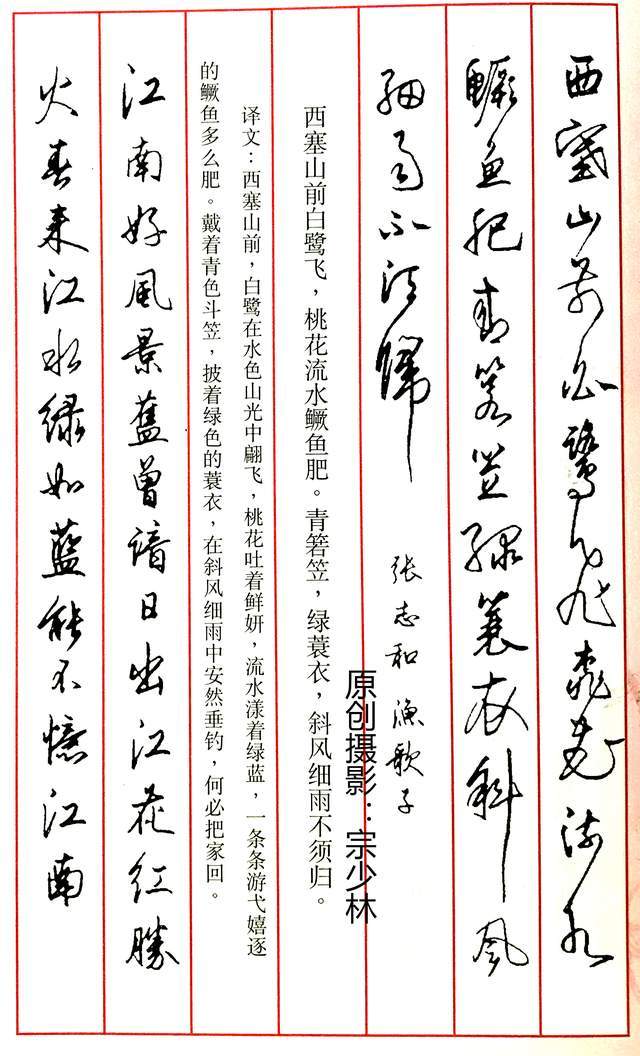 西塞山前白鹭飞桃花流水
鳜鱼肥青箬笠绿蓑衣斜风
细雨不须归
张志和 渔歌子
原创摄影：宗少林
西塞山前白鹭飞，桃花流水鳜鱼肥。青箬笠，绿蓑衣，斜风细雨不须归。
译文：西塞山前，白鹭在水色山光中翩飞，桃花吐着鲜妍，流水漾着绿蓝，一条条游弋嬉逐
的鳜鱼多么肥。戴着青色斗笠，披着绿色的蓑衣，在斜风细雨中安然垂钓，何必把家回。
江南好風景舊曾諳日出江花红勝
火春来江水绿如藍能不憶江南